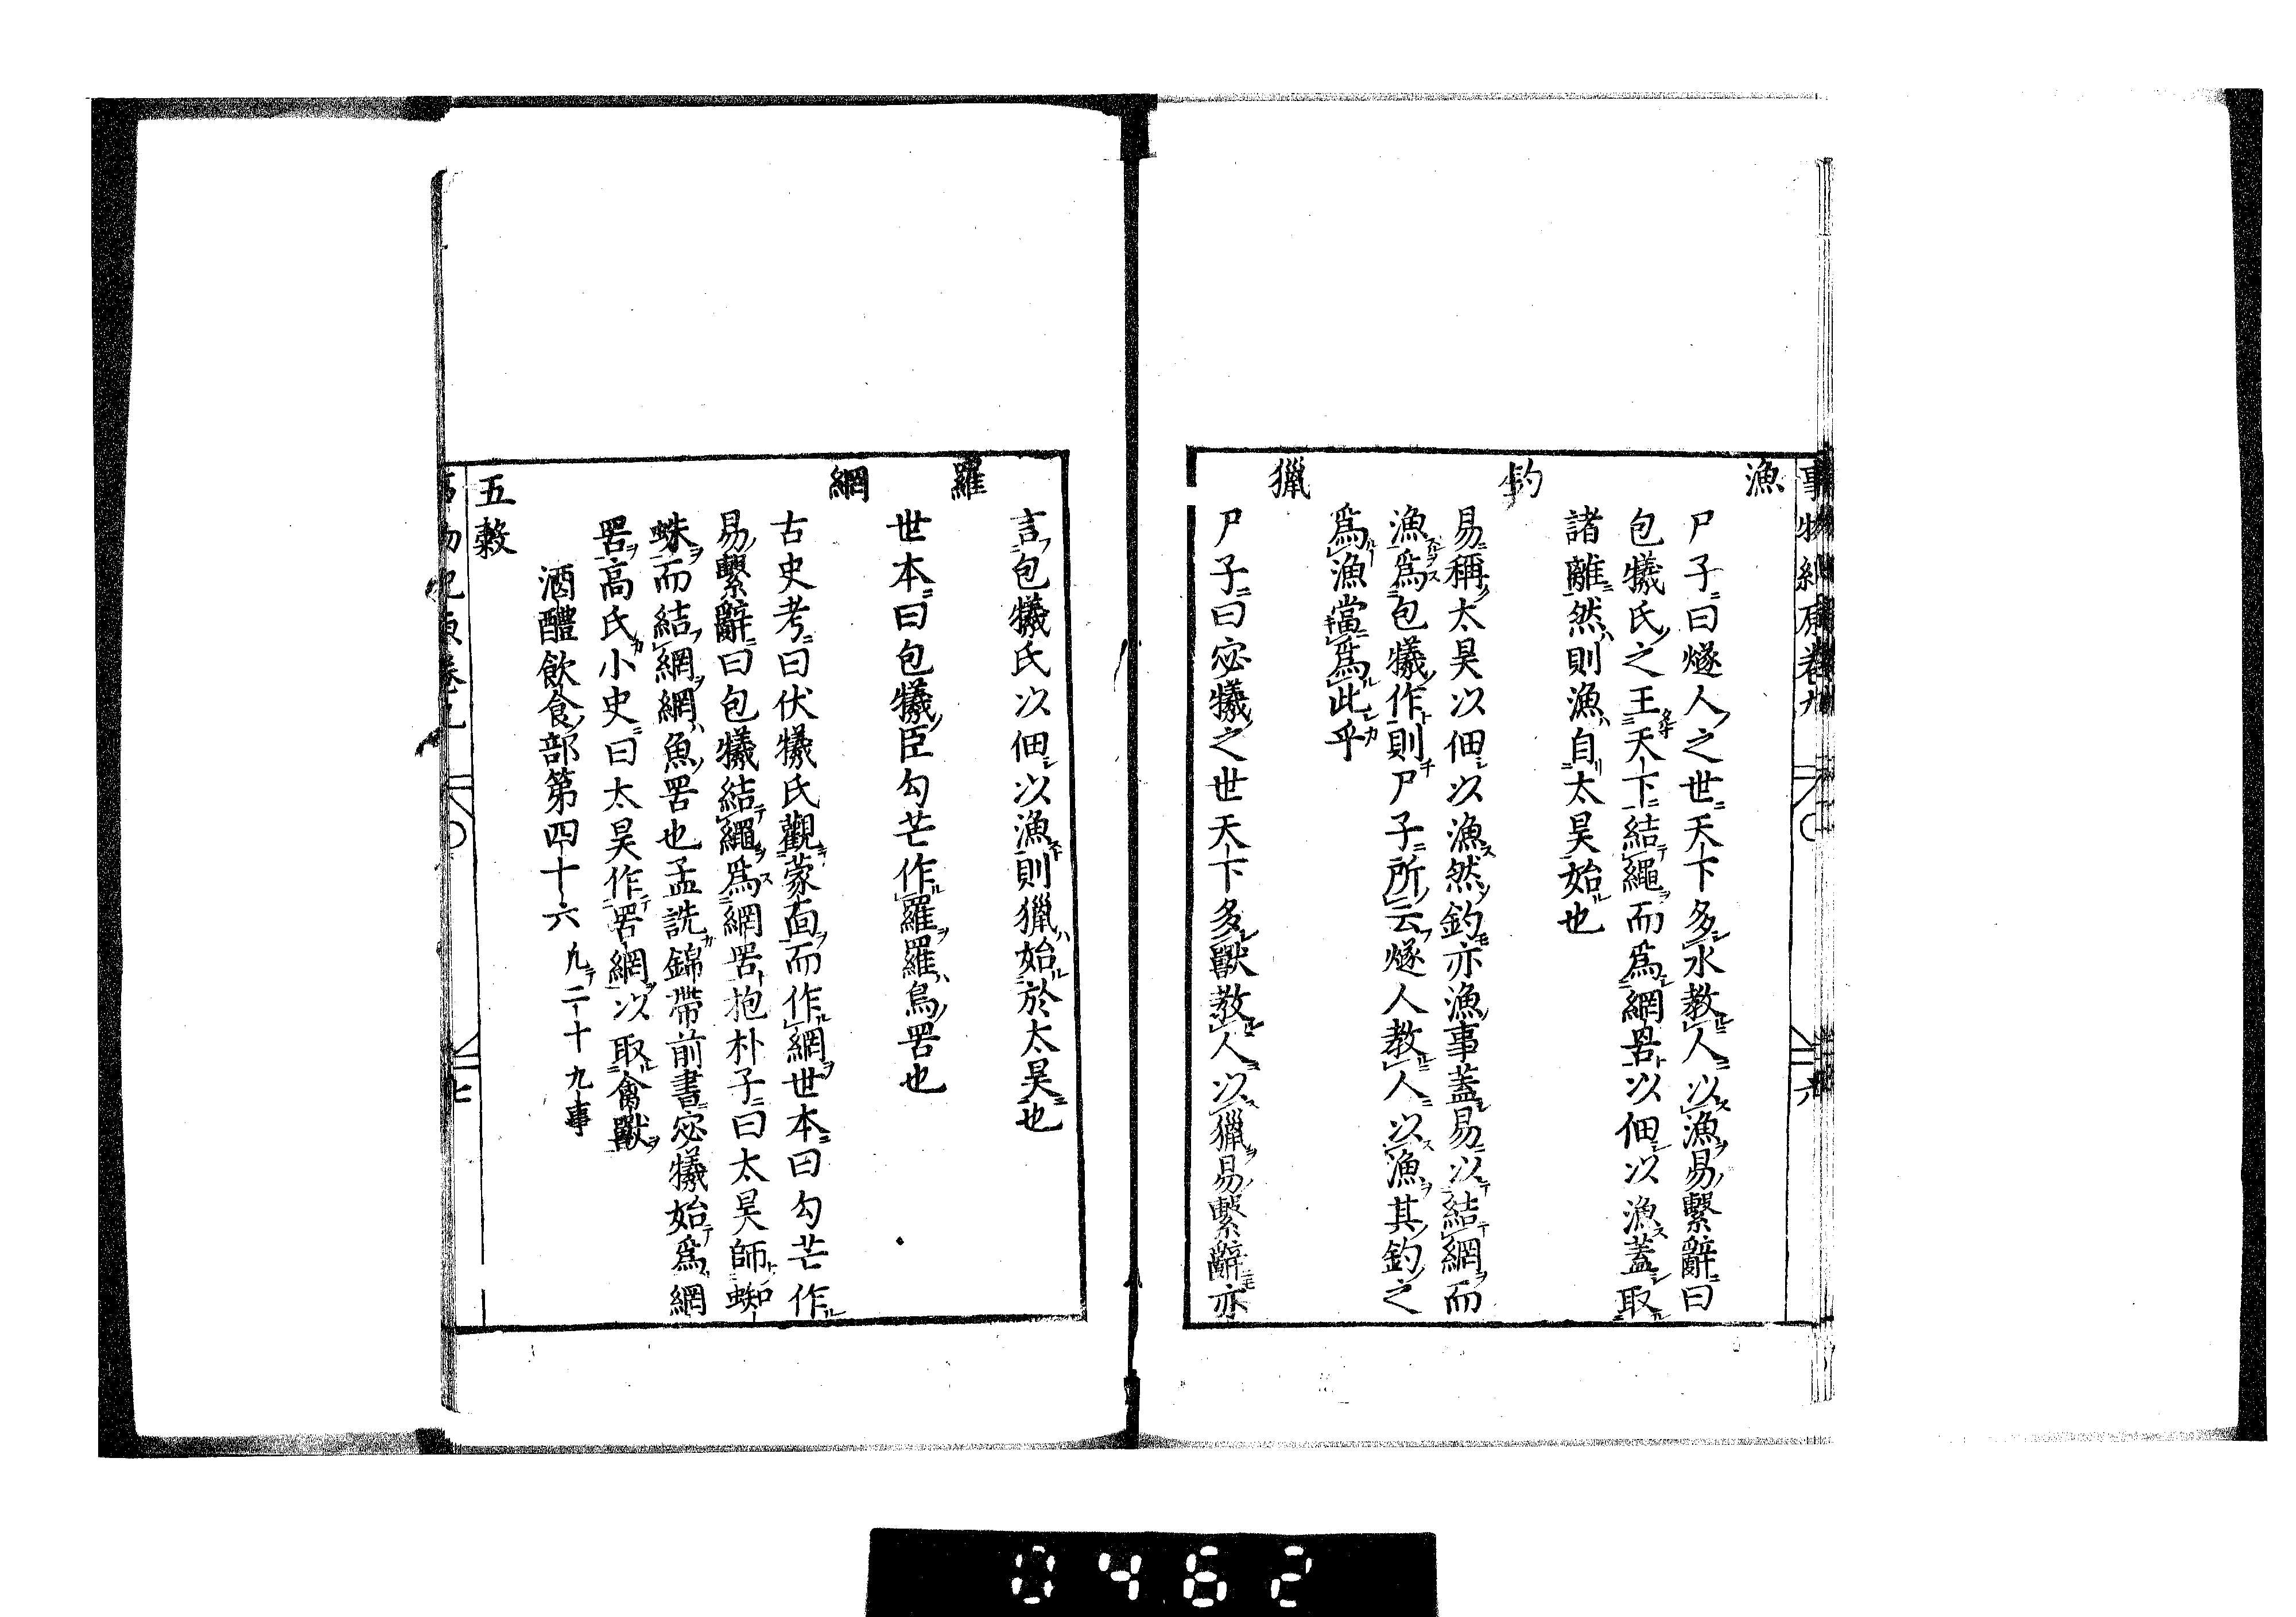 事物紀原卷九　六
漁
尸子曰燧人之世天下多水教人以漁易繫辭曰
包犧氏之王天下結繩而爲網罟以佃以漁蓋取
諸離然則漁自太昊始也
釣
易稱太昊以佃以漁然釣亦漁事蓋易以結網而
漁爲包犧作則尸子所云燧人教人以漁其釣之
爲漁當爲此乎
獵
尸子曰宓犧之世天下多獸教人以獵易繫辭亦
言包犧氏以佃以漁則獵始於太昊也
羅
世本曰包犧臣勾芒作羅羅鳥罟也
網
古史考曰伏犧氏觀蒙面而作網世本曰勾芒作
易繫辭曰包犧結繩爲網罟抱朴子曰太昊師蜘
蛛而結網網魚罟也孟詵錦帶前書宓犧始爲網
罟高氏小史曰太昊作罟網以取禽獸
酒醴飲食部第四十六　凡二十九事
五穀
七
0462